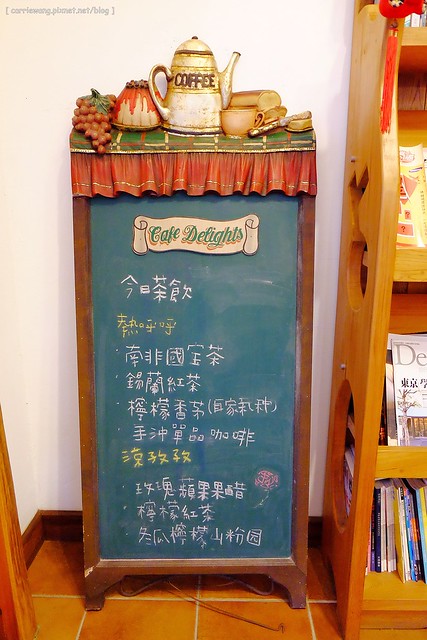 [ carriewang.pixnet.net/blog ]
COFFEE
Cafe Delights
今日茶飲
熱呼呼
·南非國宝茶
·錫蘭紅茶
·檸檬香茅(自家氣种)
·手沖單品咖啡
涼孜孜
·玫瑰蘋果果醋
·檸檬紅茶
·冬瓜檸檬山粉园
De
東京學